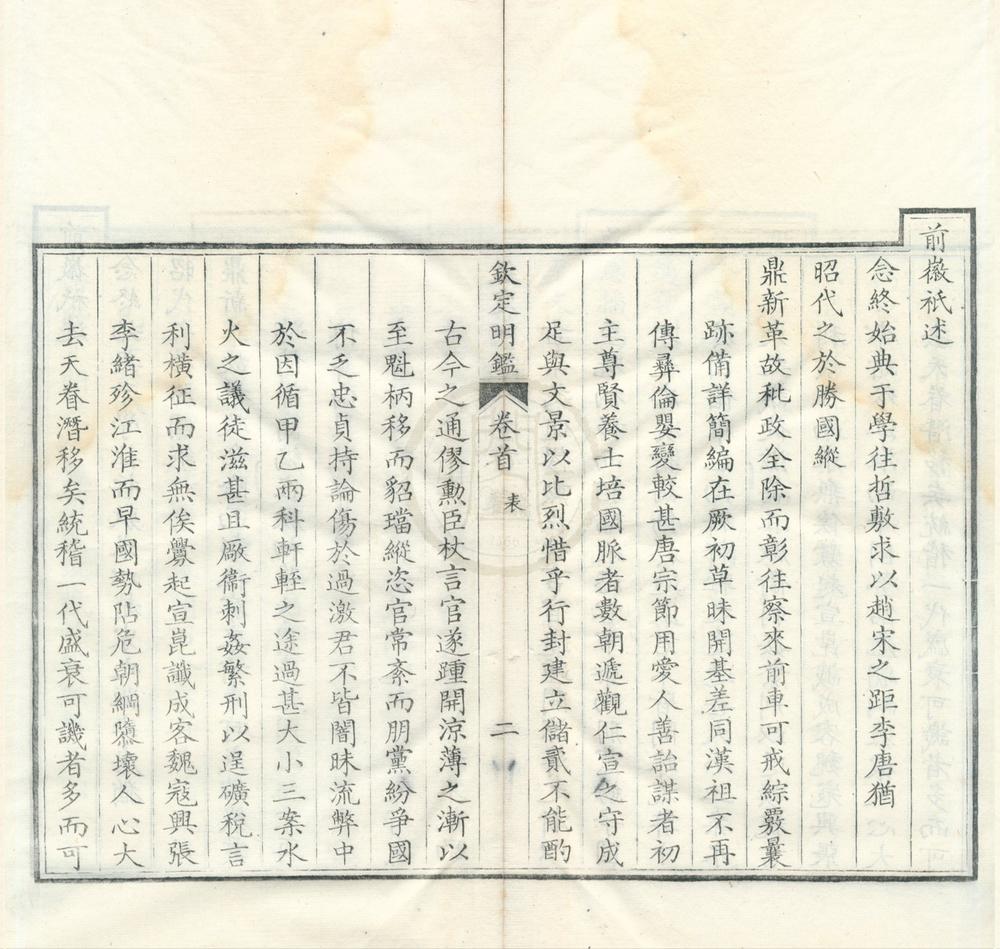 前徽祇述
念終始典于學往哲敷求以趙宋之距李唐猶
昭代之於勝國縱
鼎新革故秕政全除而彰往察來前車可戒綜覈曩
跡備詳簡編在厥初草昧開基差同漢祖不再
傳彞倫嬰變較甚唐宗節用愛人善詒謀者初
主尊賢養士培國脈者數朝遞觀仁宣之守成
足與文景以比烈惜乎行封建立儲貳不能酌
欽定明鑑 卷首 表 二
古今之通僇勳臣杖言官遂踵開涼薄之漸以
至魁柄移而貂璫縱恣官常紊而朋黨紛爭國
不乏忠貞持論傷於過激君不皆闇昧流弊中
於因循甲乙兩科軒輊之途過甚大小三案水
火之議徒滋甚且廠衞刺姦繁刑以逞礦稅言
利橫征而求無俟釁起宣崑讖成客魏寇興張
李緒殄江淮而早國勢阽危朝綱隳壞人心大
去天眷潛移矣統稽一代盛衰可譏者多而可